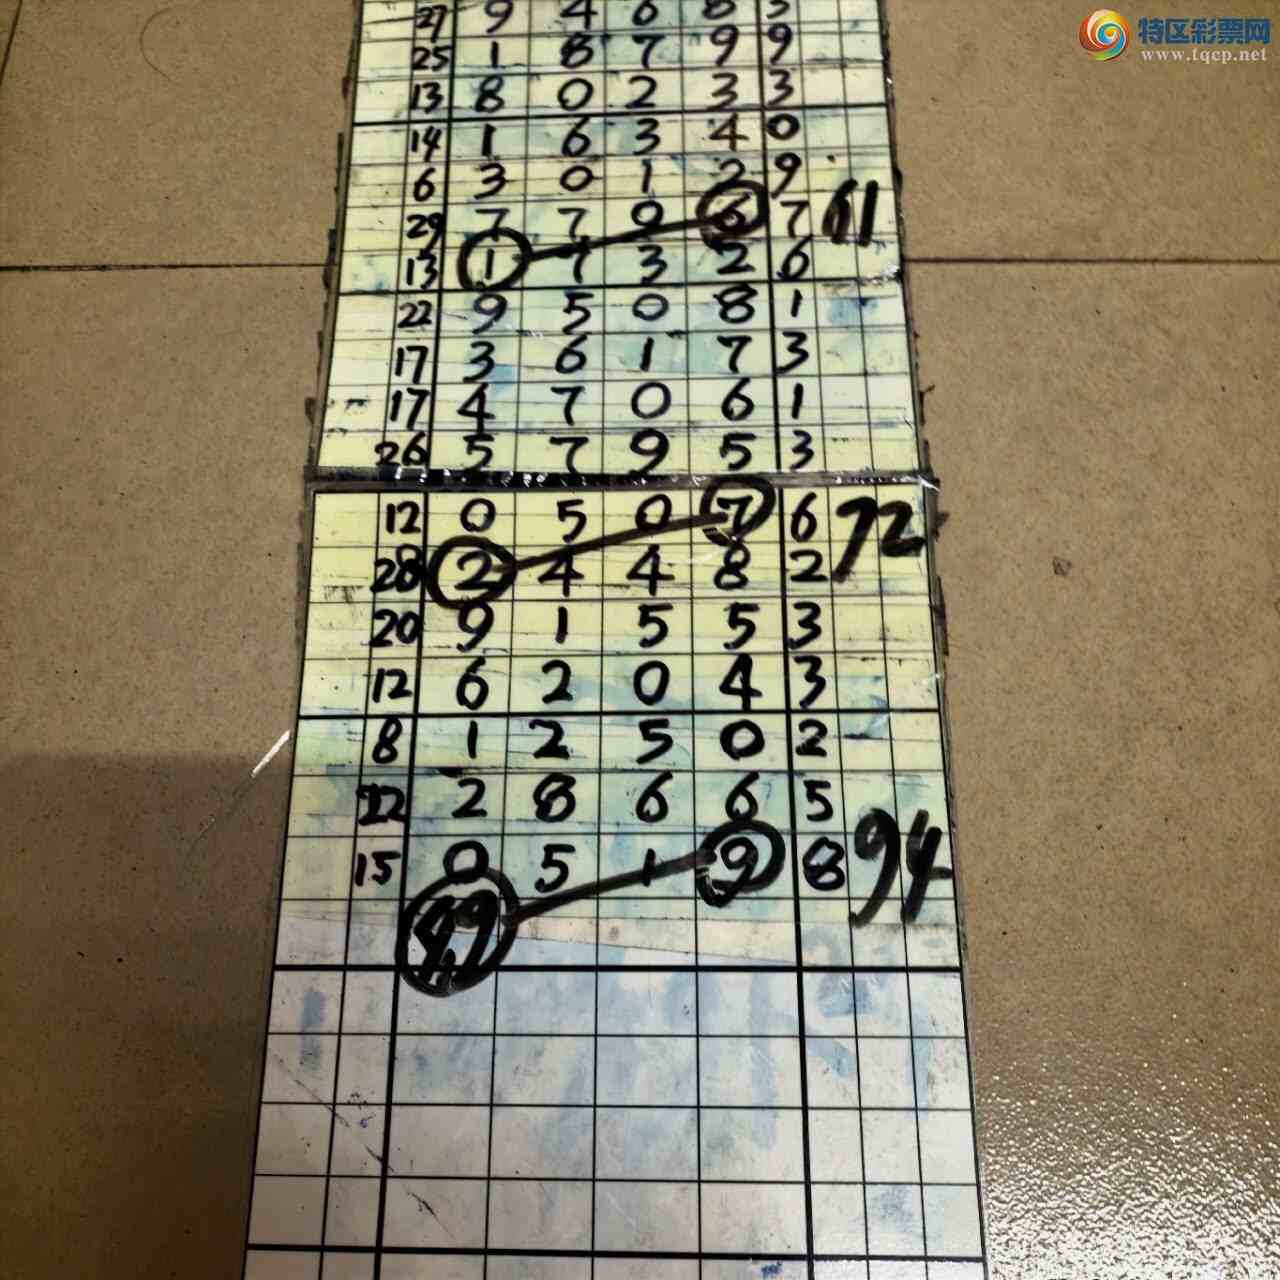 特区彩票网
www.tqcp.net
27 9 4 6 8 3
25 1 8 7 9 9
13 8 0 2 3 3
14 1 6 3 4 0
6 3 0 1 2 9
29 7 7 0 6 7 61
13 1 7 3 2 6
22 9 5 0 8 1
17 3 6 1 7 3
17 4 7 0 6 1
26 5 7 9 5 3
12 0 5 0 7 6 72
28 2 4 4 8 2
20 9 1 5 5 3
12 6 2 0 4 3
8 1 2 5 0 2
22 2 8 6 6 5
15 0 5 1 9 8 94